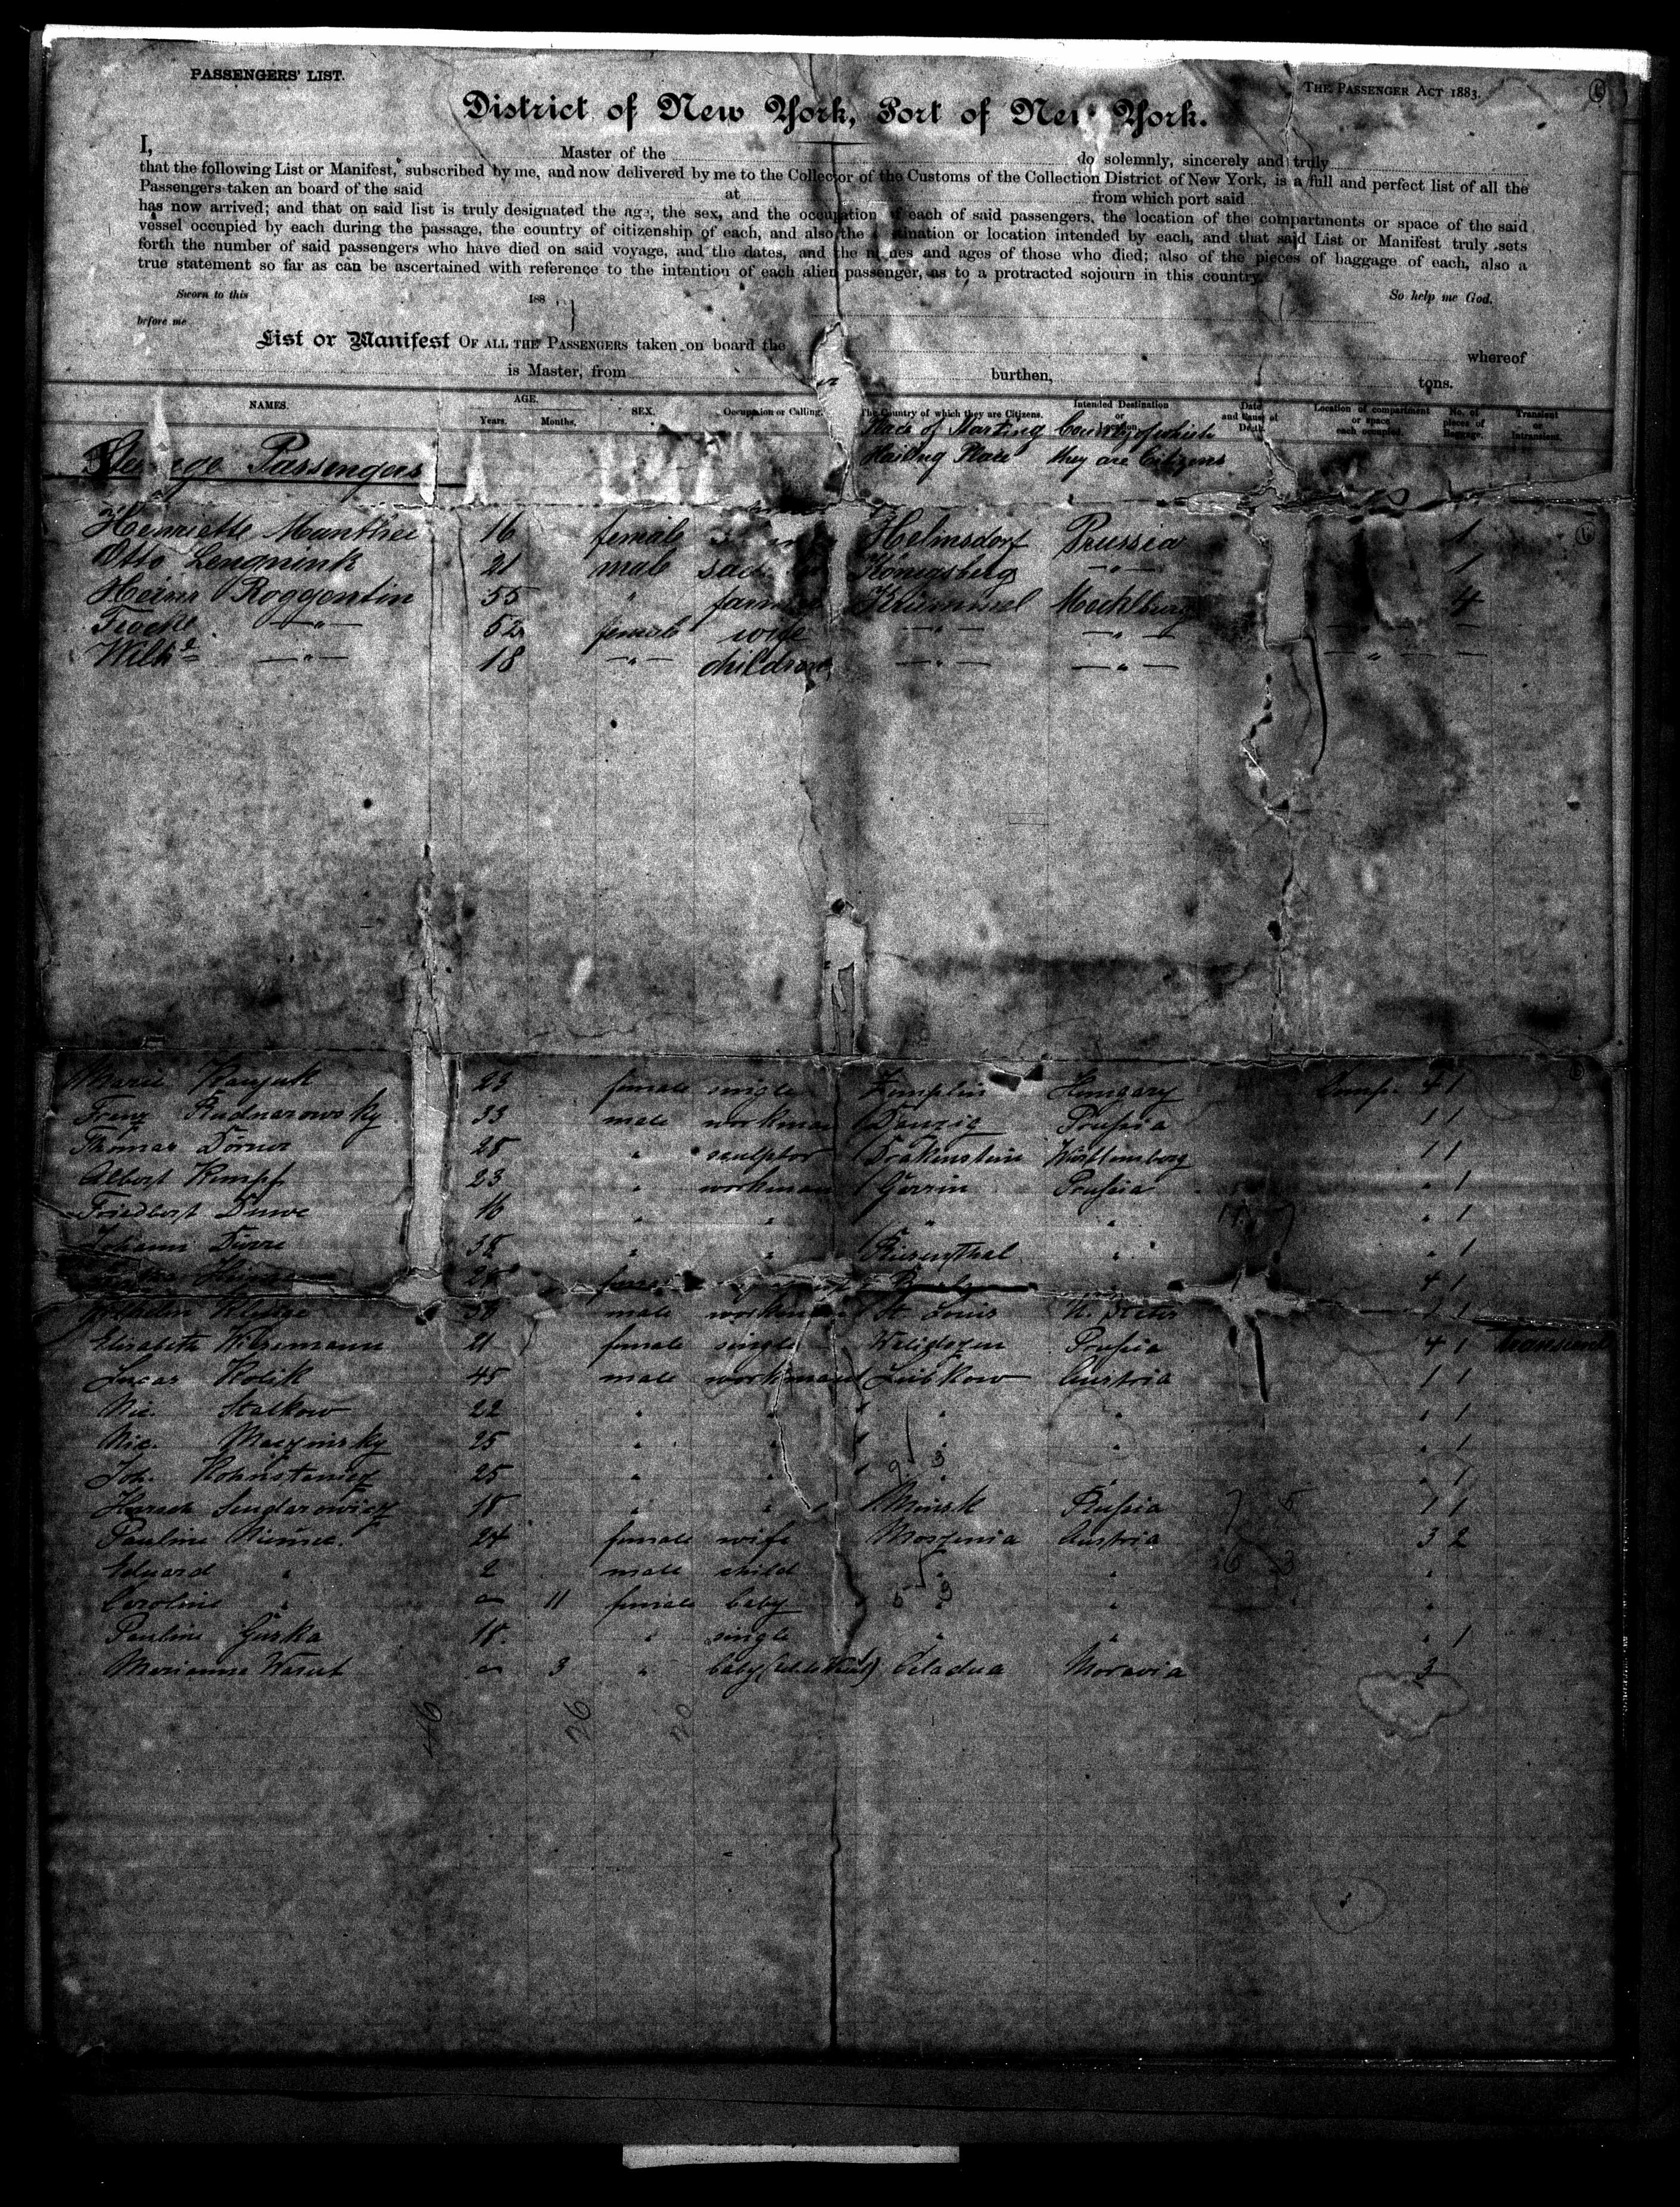 PASSENGERS' LIST.
THE PASSENGER ACT 1883.
District of New York, Port of New York.
I, Master of the do solemnly, sincerely and truly
that the following List or Manifest, subscribed by me, and now delivered by me to the Collector of the Customs of the Collection District of New York, is a full and perfect list of all the
Passengers taken an board of the said at from which port said
has now arrived; and that on said list is truly designated the age, the sex, and the occupation of each of said passengers, the location of the compartments or space of the said
vessel occupied by each during the passage, the country of citizenship of each, and also the destination or location intended by each, and that said List or Manifest truly sets
forth the number of said passengers who have died on said voyage, and the dates, and the names and ages of those who died; also of the pieces of baggage of each, also a
true statement so far as can be ascertained with reference to the intention of each alien passenger, as to a protracted sojourn in this country.
Sworn to this 188 So help me God.
before me
List or Manifest OF ALL THE PASSENGERS taken on board the whereof
is Master, from burthen, tons.
NAMES. AGE. Years. Months. SEX. Occupation or Calling. The Country of which they are Citizens. Intended Destination or Date and Cause of Death. Location of compartment or space each occupied. No. of pieces of Baggage. Transient or Intransient.
Place of Starting Country of which
Hailing Place they are Citizens
Passengers
Henriette Manthei 16 female Helmsdorf Prussia 1
Otto Lengnink 21 male Königsberg -"- 1
Heinr Roggentin 55 " farmer Krümmel Mecklburg 4
52 female wife -"- -"-
Wilh -"- 18 -"- children -"- -"- -"-
Marie 23 female single Zemplin Hungary Comp. 4 1
Franz Rudnarowsky 33 male workman Danzig Prussia 1 1
Thomas Dörner 28 " sculptor Drakenstein Württemberg 1 1
Albert Kempf 23 " workman Gerrin Prussia " 1
Friedbert Duwe 16 " " " " " 1
Johann Dürre 38 " " Riesenthal " " 1
4 1
Wilhelm male workman St. Louis U. States 1 1
Elisabeth Wilsemann 21 female single Prussia 4 1
Lucas Kolik 45 male workman Lubkow Austria 1 1
Nic. Stalkow 22 " " " " " 1
Nic. Maczinsky 25 " " " " " 1
Joh. 25 " " " " " 1
18 " " Minsk Russia 1 1
Pauline 24 female wife Moszenia Austria 3 2
Eduard " 2 male child " " "
Caroline " 11 female baby " " "
Pauline Gurka 18 " single " " " 1
Marianna 3 " baby Celadna Moravia 3
46 26 20